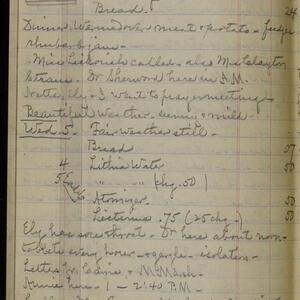 Bread 24
Dinner. Warmed over meat & potato - fudge
rhubarb
Miss called - also Mrs Clayton
Straus. Dr Sherwood here in A.M.
& I went to prayer meeting
Beautiful weather - sunny & mild
Wed. 5. Fair weather still.
Bread 07
4 Lithia Water
5 " " (chg .50)
Atomizer
Listerine .75 (25 chg.)
Ely has sore throat. Dr here about noon
tablets every hour - & gargle - isolation
Letters &
Annie here - 1 - 2:40 P.M.